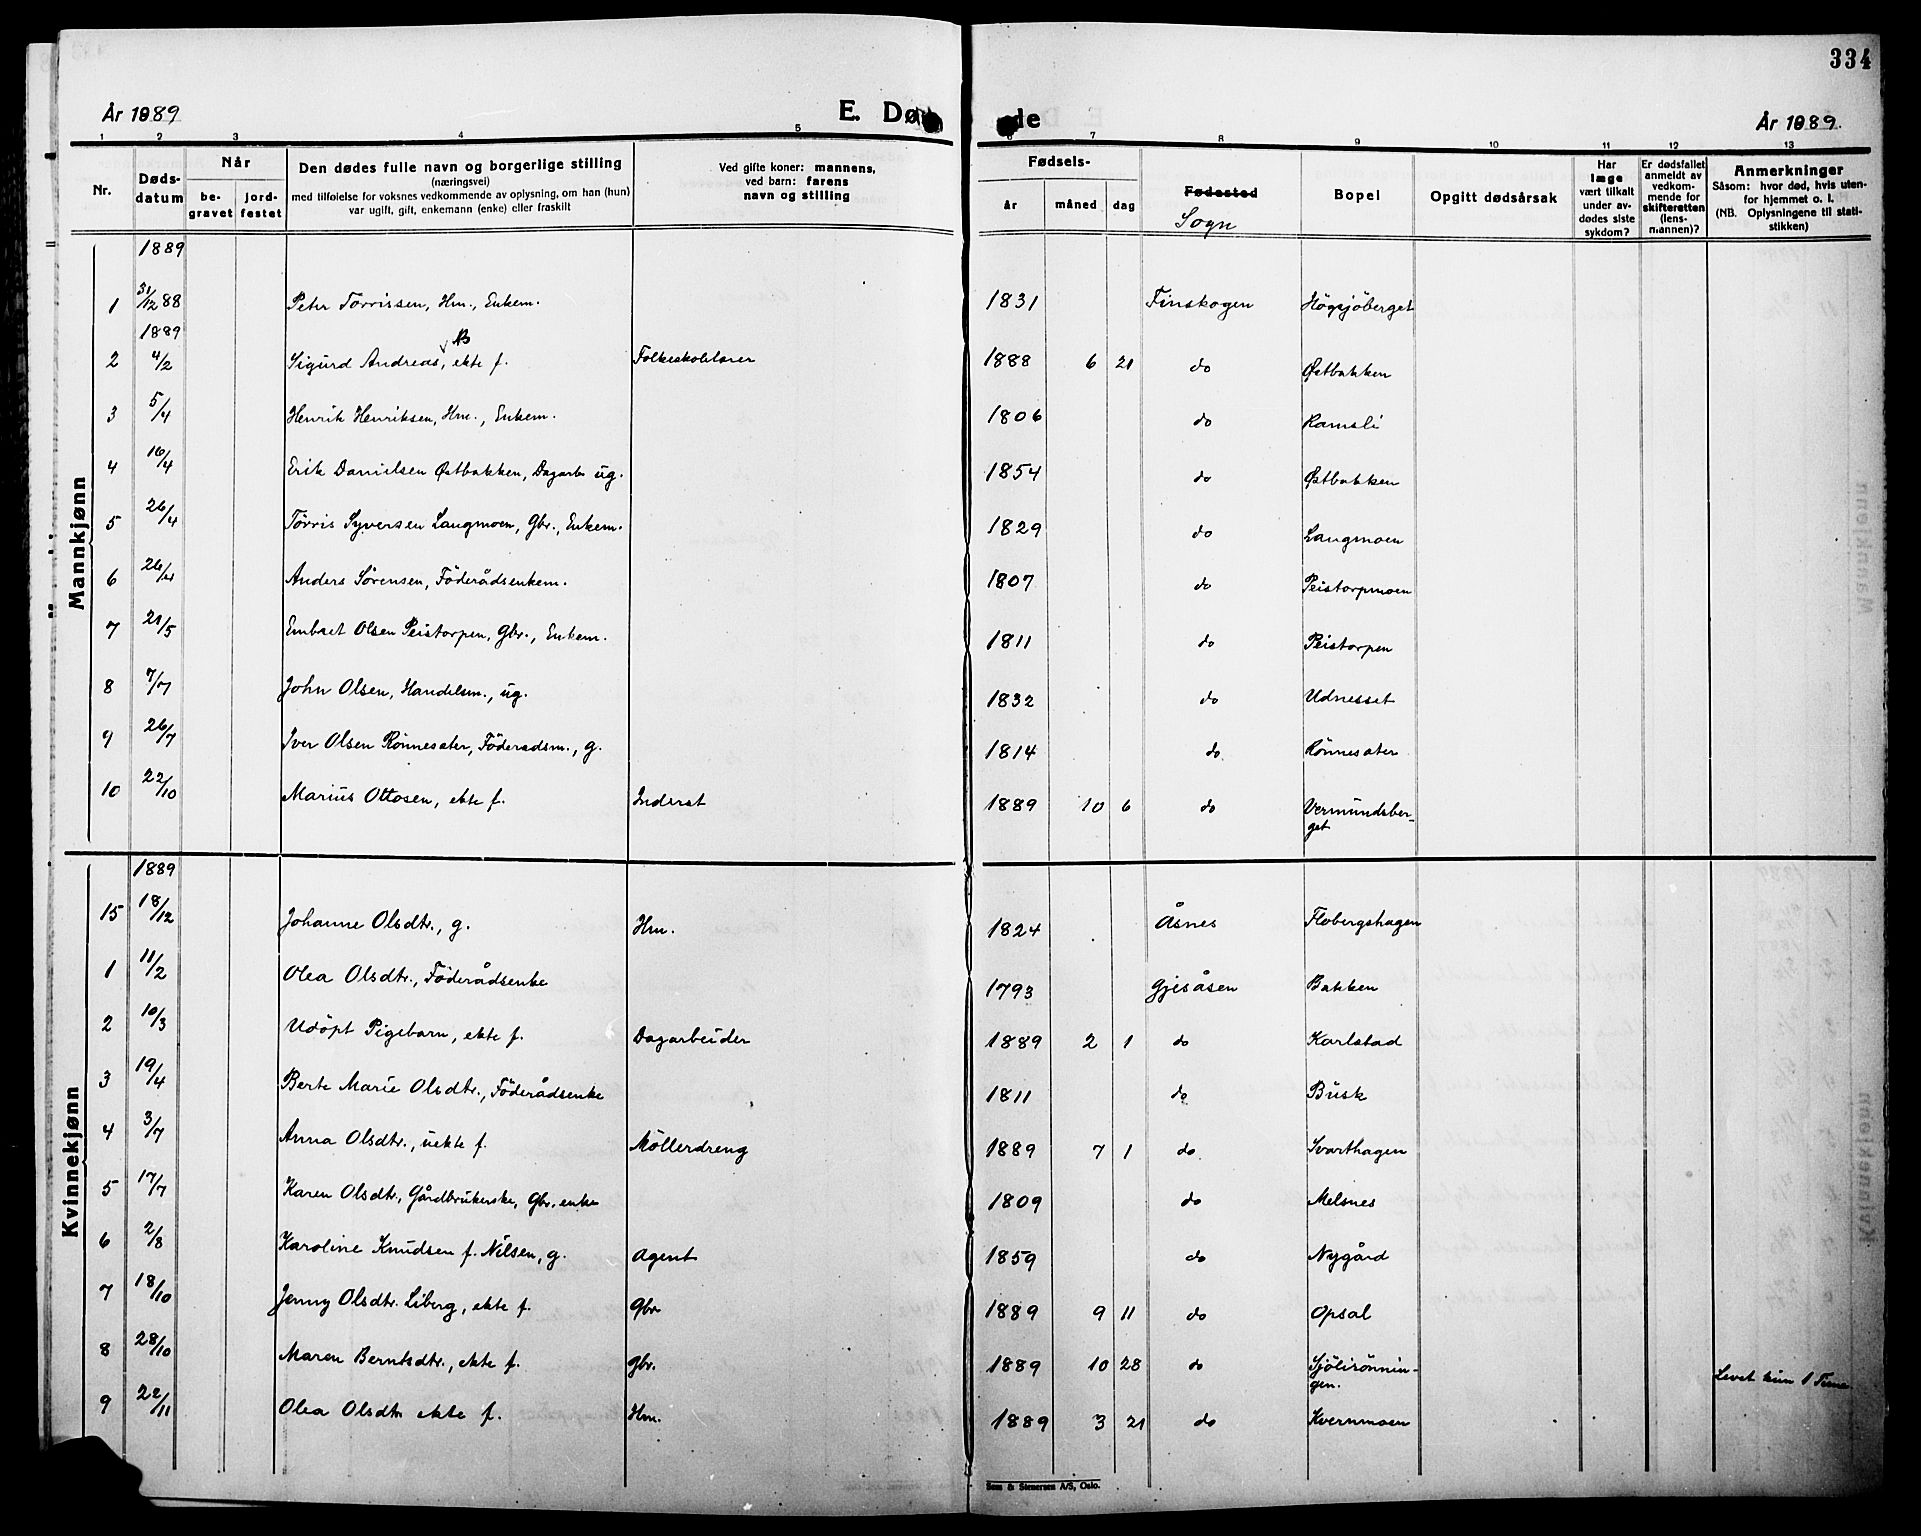 334
År 1889
E. Dø
de
År 1889.
1 2 3 4 5 6 7 8 9 10 11 12 13
Nr.
Døds-
datum
Når
be-
gravet
jord-
festet
Den dødes fulle navn og borgerlige stilling
(næringsvei)
med tilføielse for voksnes vedkommende av oplysning, om han (hun)
var ugift, gift, enkemann (enke) eller fraskilt
Ved gifte koner: mannens,
ved barn: farens
navn og stilling
Fødsels-
år måned dag
Fødested
Sogn
Bopel
Opgitt dødsårsak
Har
læge
vært tilkalt
under av-
dødes siste
sykdom?
Er dødsfallet
anmeldt av
vedkom-
mende for
skifteretten
(lens-
mannen)?
Anmerkninger
Såsom: hvor død, hvis uten-
for hjemmet o. l.
(NB. Oplysningene til stati-
stikken)
Mannkjønn
1889
1 31/12 88 Peter Tørrissen, Hm., Enkem. 1831 Finskogen Högsjöberget
1889
NB
2 4/2 Sigurd Andreas, ekte f. Folkeskolelærer 1888 6 21 do Østbakken
3 5/4 Henrik Henriksen, Hm., Enkem. 1806 do Ramsli
4 16/4 Erik Danielsen Østbakken, Dagarb. ug. 1854 do Østbakken
5 26/4 Tørris Syversen Langmoen, Gbr., Enkem. 1829 do Langmoen
6 26/4 Anders Sørensen, Föderådsenkem. 1807 do Peistorpmoen
7 21/5 Embret Olsen Peistorpen, Gbr., Enkem. 1811 do Peistorpen
8 7/7 John Olsen, Handelsm., ug. 1832 do Udnesset
9 26/7 Iver Olsen Rönnesater, Föderadsm., g. 1814 do Rönnesater
10 22/10 Marius Ottosen, ekte f. Inderst 1889 10 6 do Vermundsber-
get
Kvinnekjønn
1889
15 18/12 Johanne Olsdtr., g. Hm. 1824 Åsnes Flobergshagen
1 11/2 Olea Olsdtr., Föderådsenke 1793 Gjesåsen Bakken
2 10/3 Udöpt Pigebarn, ekte f. Dagarbeider 1889 2 1 do Karlstad
3 19/4 Berte Marie Olsdtr., Föderådsenke 1811 do Busk
4 3/7 Anna Olsdtr., uekte f. Möllerdreng 1889 7 1 do Svarthagen
5 17/7 Karen Olsdtr., Gårdbrukerske, Gbr. enke 1809 do Melsnes
6 2/8 Karoline Knudsen f. Nilsen, g. Agent 1859 do Nygård
7 18/10 Jenny Olsdtr. Liberg, ekte f. Gbr 1889 9 11 do Opsal
8 28/10 Maren Berntsdtr., ekte f. Gbr. 1889 10 28 do Sjölirönnin-
gen. Levet kun 1 Time
9 22/11 Olea Olsdtr ekte f. Hm. 1889 3 21 do Kvernmoen
Sem & Stenersen A/S, Oslo.